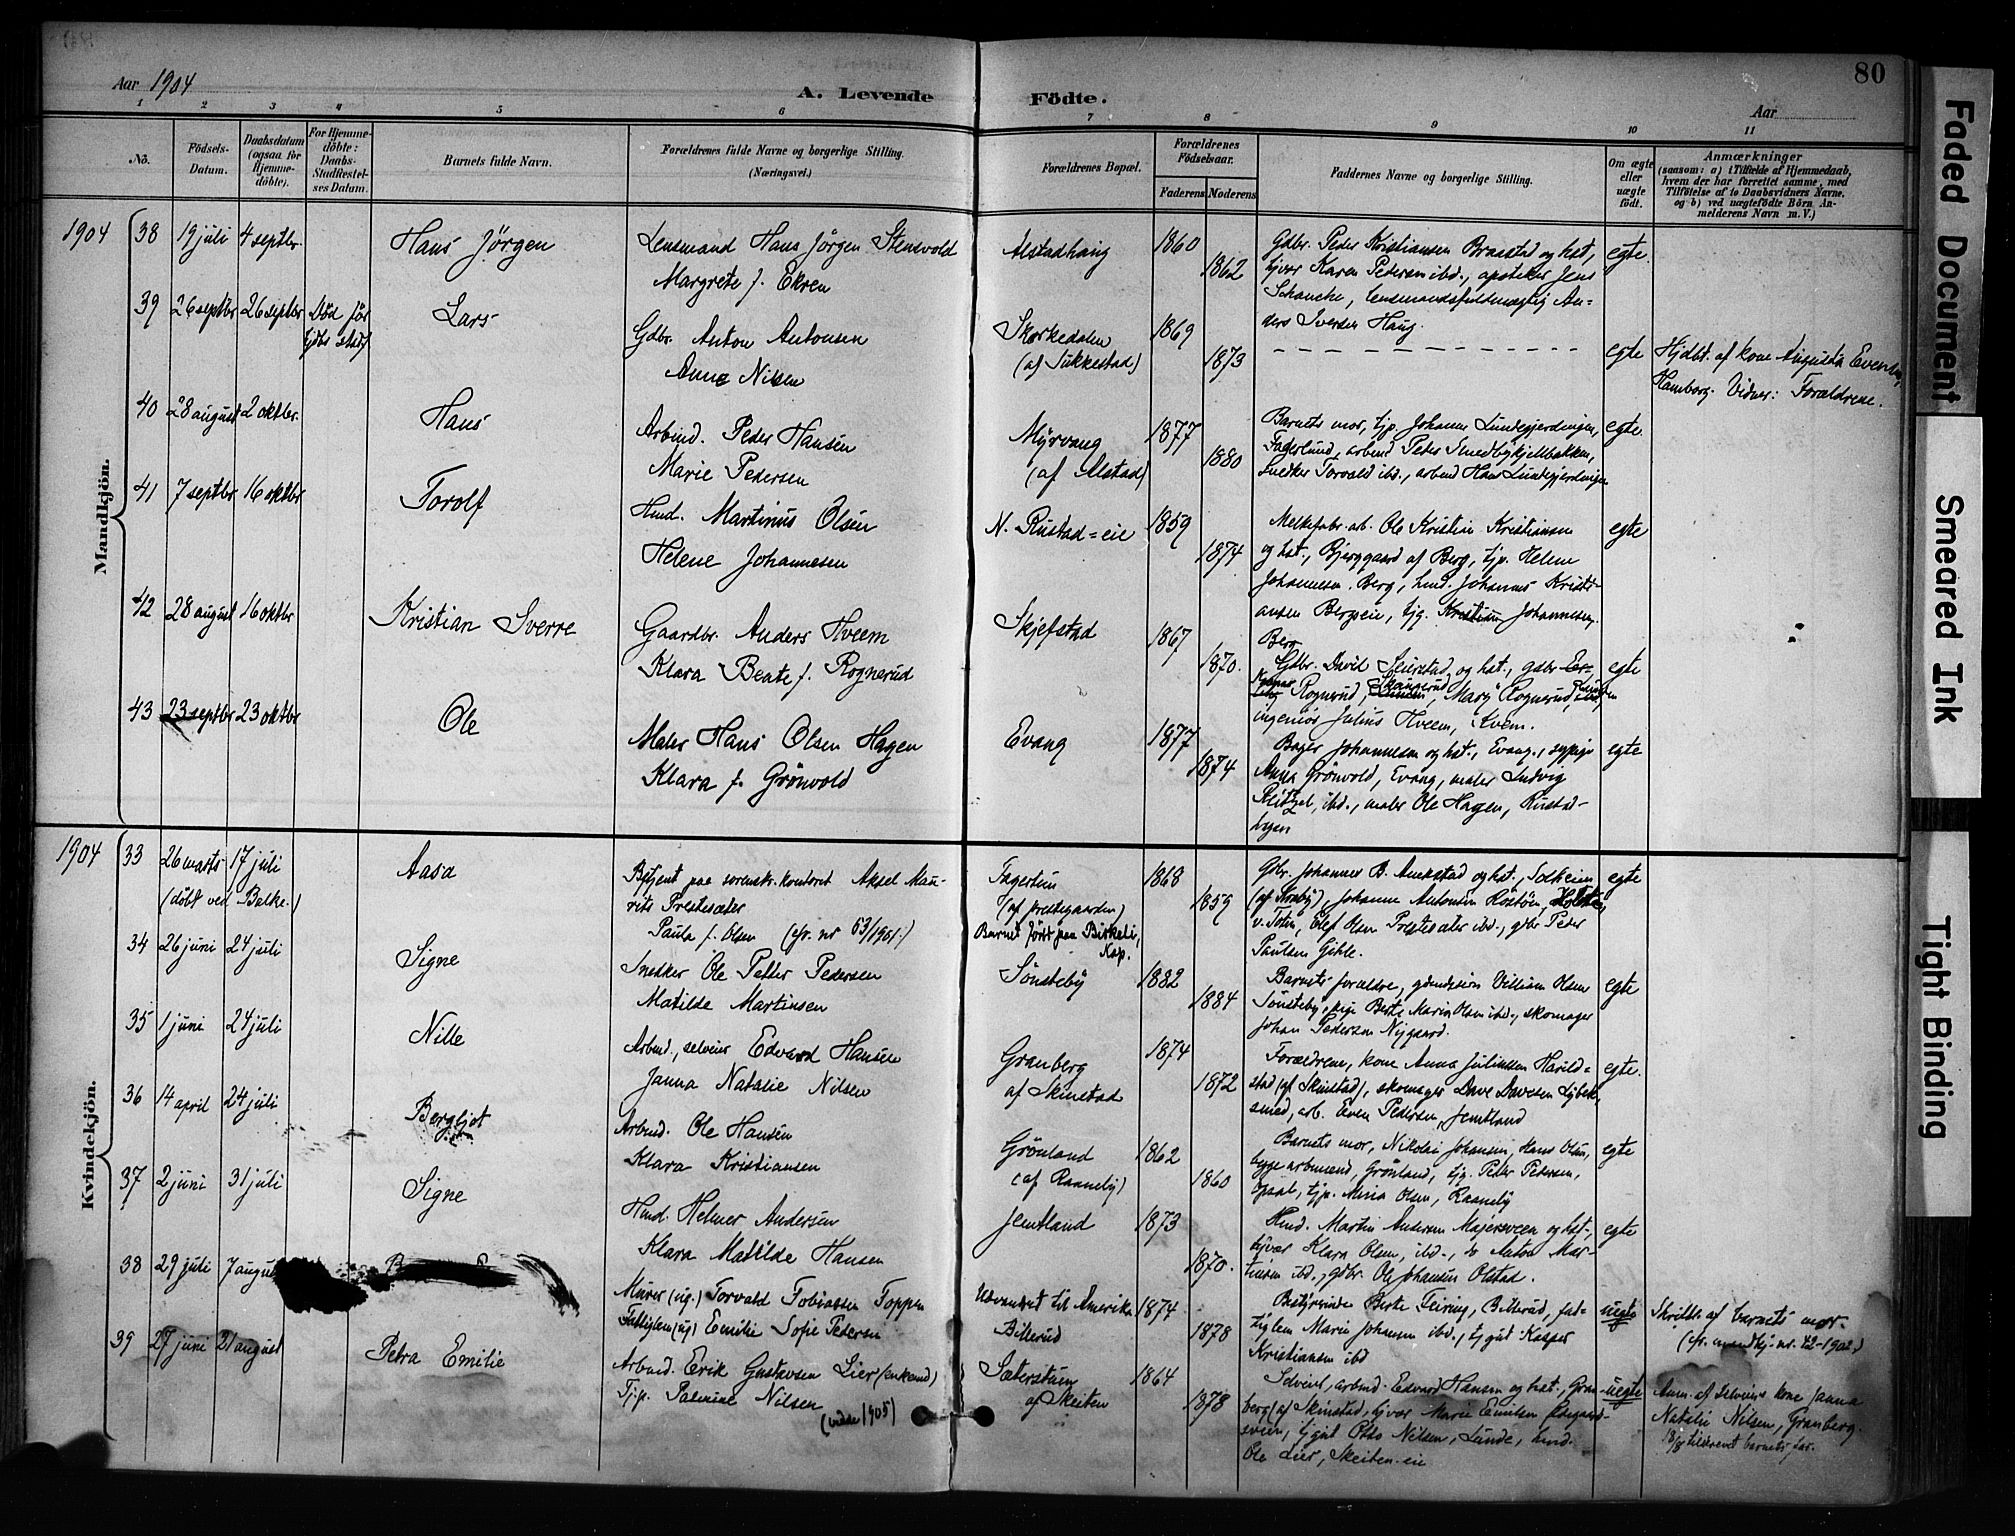 80
Aar 1904
A. Levende Födte.
Aar
1 2 3 4 5 6 7 8 9 10 11
No.
Födsels-Datum.
Daabsdatum (ogsaa for Hjemme-döbte).
For Hjemme-döbte: Daabs-Stadfestel-ses Datum.
Barnets fulde Navn.
Forældrenes fulde Navne og borgerlige Stilling. (Næringsvei.)
Forældrenes Bopæl.
Forældrenes Födselsaar.
Faderens Moderens
Faddernes Navne og borgerlige Stilling.
Om ægte eller uægte födt.
Anmærkninger
(saasom: a) i Tilfælde af Hjemmedaab, hvem der har forrettet samme, med Tilföielse af to Daabsvidners Navne, og b) ved uægtefödte Börn An-melderens Navn m. V.)
Mandkjön.
1904 38 19 juli 4 septbr. Hans Jörgen
Lensmand Hans Jörgen Stensvold
Margrete f. Ekren
Alstadhaug 1860 1862
Gdbr. Peder Kristiansen Braastad og hst,
tjvar Karen Pedersen ibd., apoteker Jens
Schanche, lensmandsfuldmægtig An-
ders Iversen Haug.
egte.
39 26 septbr 26 septbr Död för
Lars
Gdbr. Anton Antonsen
Anne Nilsen
Skorkedalen
(af Sukkestad)
1869 1873
egte
Hjdbt. af kone Augusta Evensen,
Hamborg. Vidner: Forældrene.
40 28 august 2 oktbr. Hans
Arbmd. Peder Hansen
Marie Pedersen
Myrvang
(af Alstad)
1877 1880
Barnets mor, tjp. Johanne Lundegjerdingen,
Faderlund, arbmd Peder Smedbykjellbakken,
snedker Torvald ibd., arbmd Hans Lundegjerdingen
egte.
41 7 septbr 16 oktbr Torolf
Hmd. Martinus Olsen
Helene Johannesen
N. Rustad=eie 1859 1874
Melkefabr.arb. Ole Kristian Kristiansen
og hst., Bjerggaard af Berg, tjp. Helene
Johannesen Berg, hmd. Johannes Kristi-
ansen Bergseie, tjg. Kristian Johannesen,
Berg
egte
42 28 august 16 oktbr. Kristian Sverre
Gaardbr. Anders Hveem
Klara Beate f. Rognerud
Skjefstad 1867 1870.
Gdbr. David Seierstad og hst., gdbr
Rognerud, Mary Rognerud,
ingeniör Julius Hveem, Kvem.
egte
43 23 septbr 23 oktbr Ole
Maler Hans Olsen Hagen
Klara f. Grönvold
Evang 1877 1874
Bager Johannesen og hst., Evang, sypige
Anna Grönvold, Evang, maler Ludvig
ibd., maler Ole Hagen, Rustad-
hagen
egte
Kvindekjön.
1904 33 26 marts 17 juli
(döbt ved Balke.)
Aasa
Betjent paa sorenskr.kontoret Aksel Mau-
rits Prestesæter
Paula f. Olsen (cfr. nr 63/1901.)
Fagertun
(af prestegaarden)
Barnet födt paa Birkeli,
Kap.
1868 1859
Gdbr. Johannes B. Amkstad og hst., Solheim
(af Kraby), Johanne Antonsen Röstöen,
v. Toten, Olef Olsen Prestesæter ibd., gdbr Peder
Paulsen Gihle.
egte
34 26 juni 24 juli Signe
Snedker Ole Petter Pedersen
Matilde Martinsen
Sönsteby 1882 1884
Barnets forældre, gdmdssön Villiam Olsen
Sönsteby, pige Berte Marie Olsen ibd., skomager
Johan Pedersen Nygaard.
egte
35 1 juni 24 juli Nille
Arbmd., selveier Edvard Hansen
Janna Natalie Nilsen
Granberg
af Skinstad
1874 1872
Forældrene, kone Anna Juliussen Harild-
stad (af Skinstad), skomager Dave Davesen Lybek,
smed, arb. Even Pedersen, Jemtland
egte.
36 14 april 24 juli Bergljot
Arbmd. Ole Hansen
Klara Kristiansen
Grönland
(af Raaneby)
1862 1860
Barnets mor, Nikolai Johansen, Hans Olsen,
byggearbmænd, Grönland, tjg. Peder Pedersen,
Opsal, tjp. Mina Olsen, Raaneby
egte
37 2 juni 31 juli Signe
Hmd. Helmer Andersen
Klara Matilde Hansen
Jemtland 1873 1870.
Hmd. Martin Andersen Majersveen og hst.,
tjvar Klara Olsen, ibd., do Anton Mar-
tinsen ibd., gdbr. Ole Johansen Olstad.
egte
38 29 juli 7 august
Murer (ug.) Torvald Tobiassen Toppen
Fattiglem (ug) Emilie Sofie Pedersen
Udvandret til Amerika
Billerud
1874 1878
Bestyrerinde Berte Teiring, Billerud, fat-
tiglem Marie Johansen ibd., tjgut Kasper
Kristiansen ibd
uegte
Skriftl. af barnets mor.
(cfr. mandkj. nr. 42-1902.)
39 27 juni 21 august Petra Emilie
Arbmd. Erik Gustavsen Lier (enkemd)
Tj.p. Palmine Nilsen
(viede 1905)
Sæterstuen
af Skeiten
1864 1878
Selveier, arbmd. Edvard Hansen og hst., Gran-
berg (af Skinstad, tjvar Marie Emilsen Ödegaard-
sveen, tjgut Otto Nilsen, Lunde, hmd.
Ole Lier, Skeiten eie
uegte
Anm. af selveiers kone Janna
Natalie Nilsen, Granberg.
18/8 tilskrevet barnets far.
Faded Document
Smeared Ink
Tight Binding